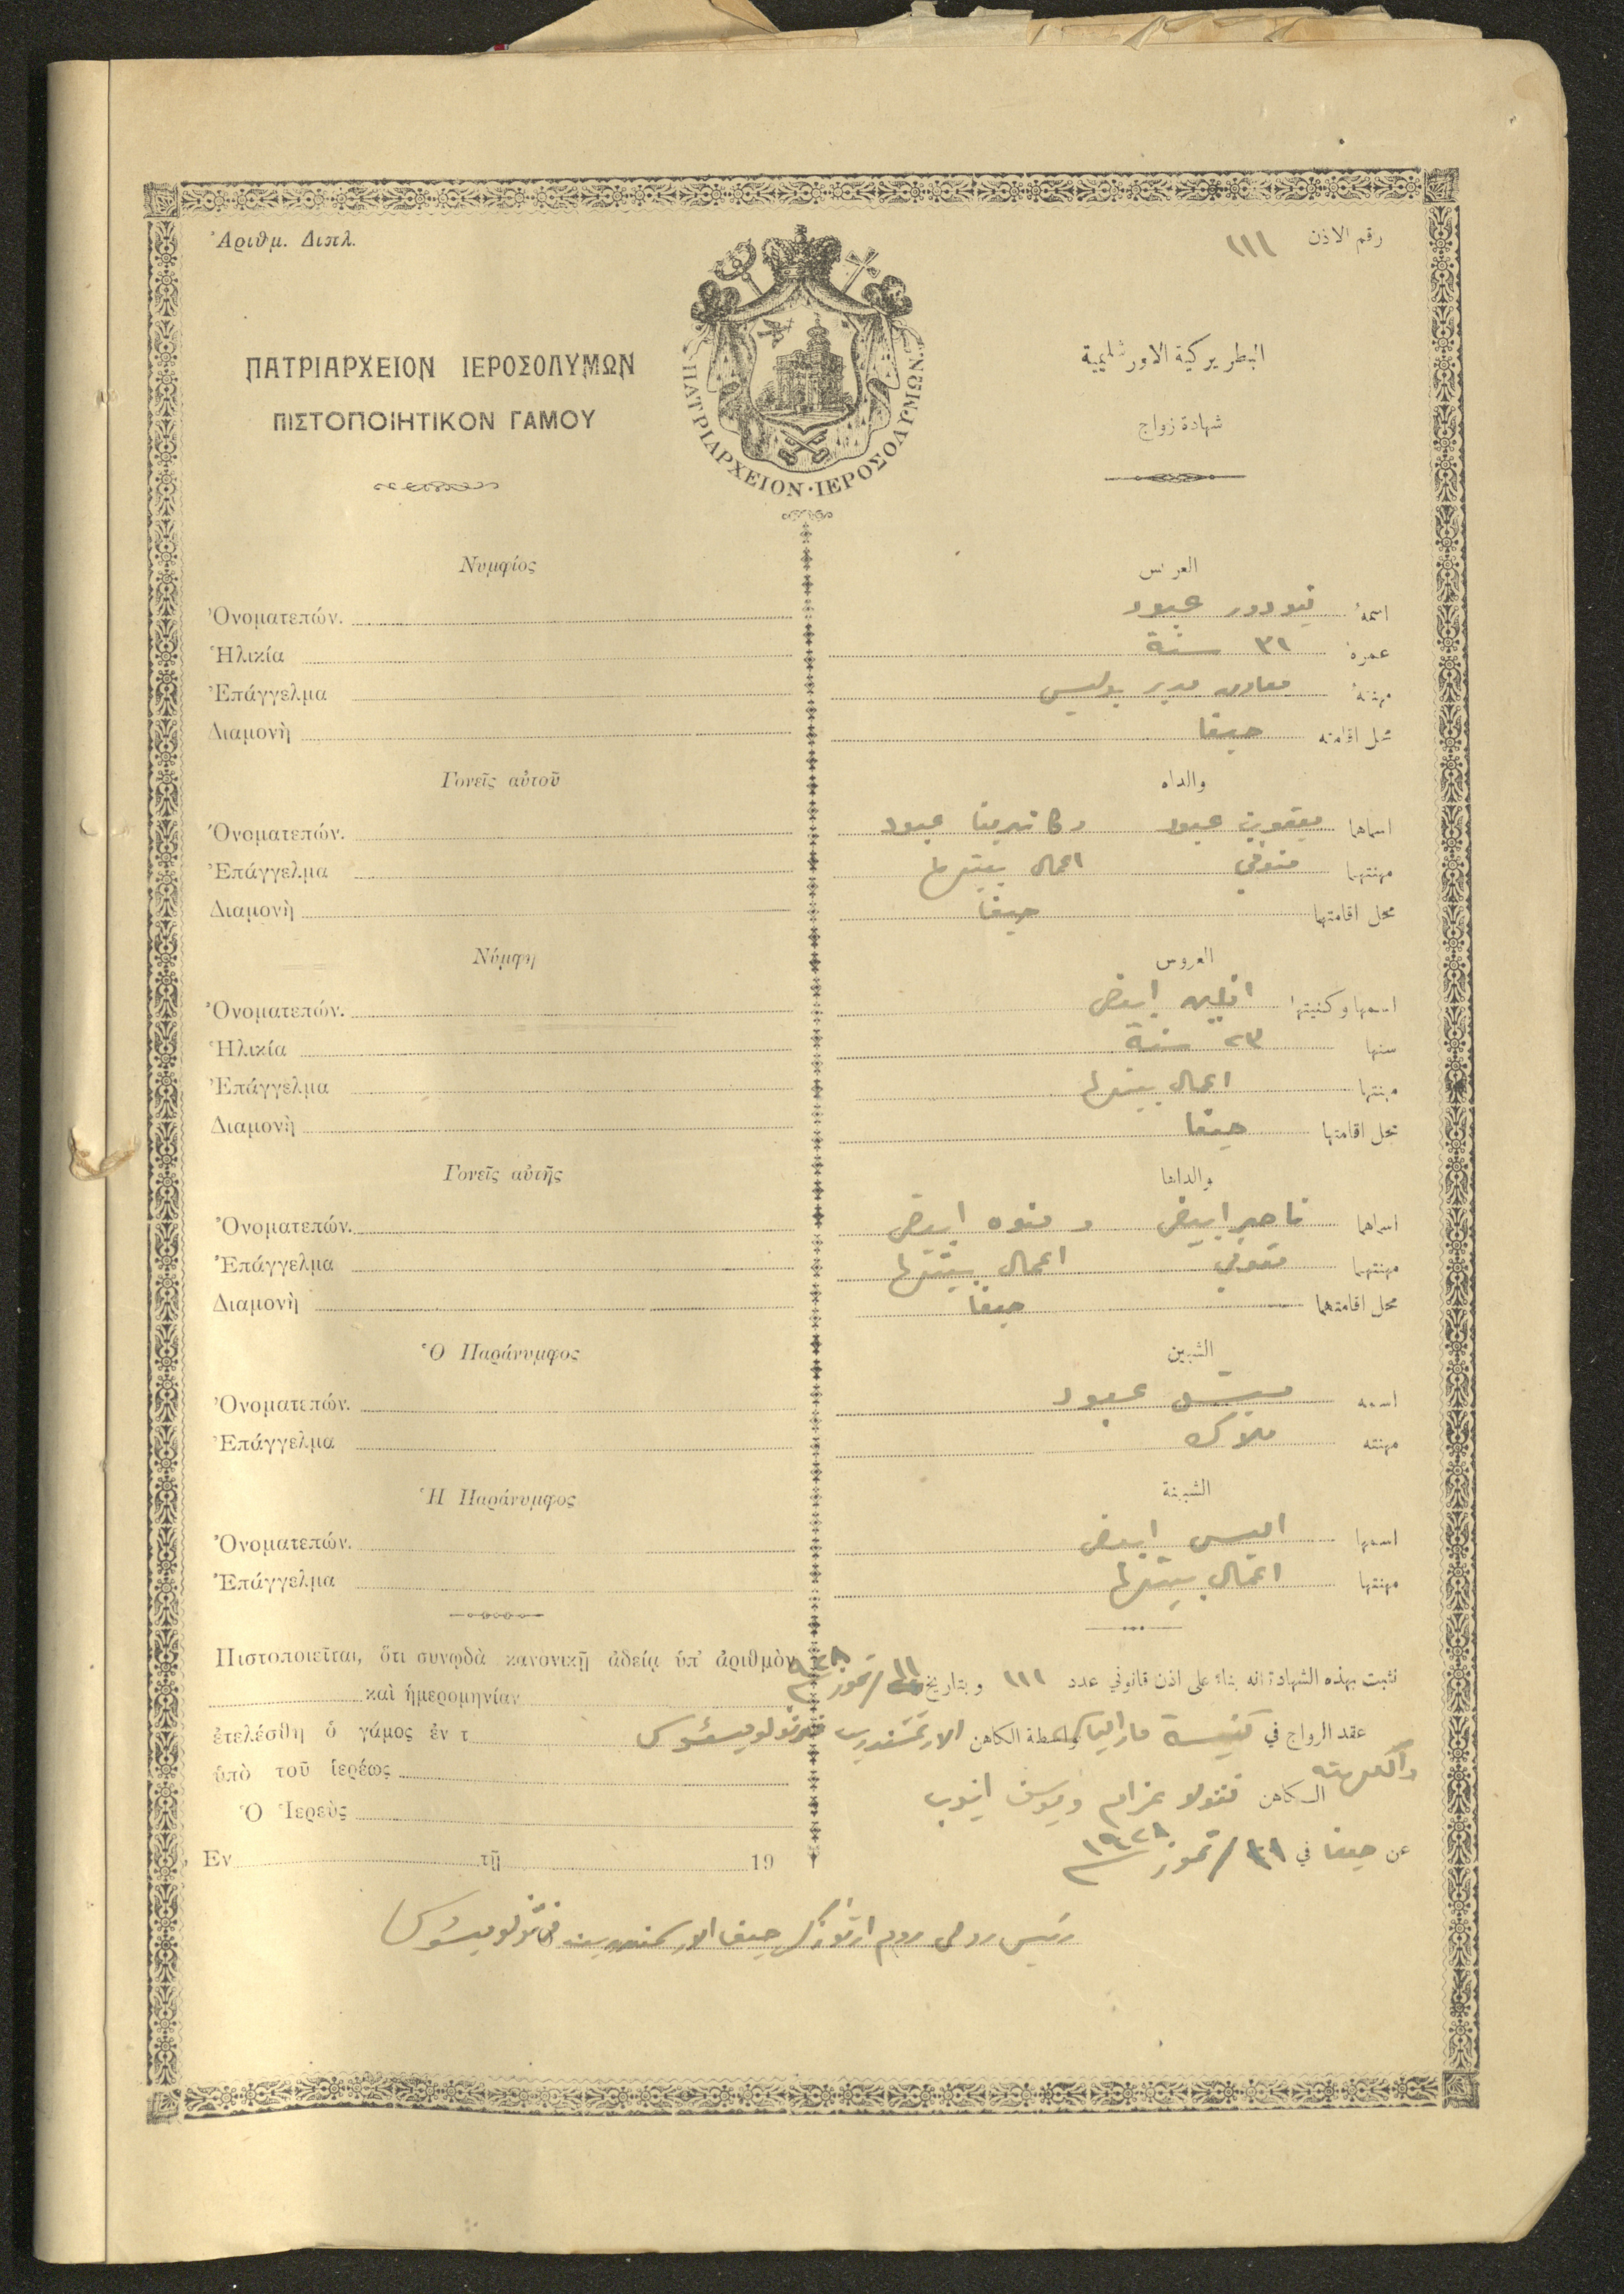 Ἀριθμ. Διπλ.
رقم الاذن ١١١
ΠΑΤΡΙΑΡΧΕΙΟΝ ΙΕΡΟΣΟΛΥΜΩΝ
البطريركية الاورشليمية
ΠΙΣΤΟΠΟΙΗΤΙΚΟΝ ΓΑΜΟΥ
شهادة زواج
ΠΑΤΡΙΑΡΧΕΙΟΝ·ΙΕΡΟΣΟΛΥΜΩΝ
Νυμφίος
Ὀνοματεπών.
Ἡλικία
Ἐπάγγελμα
Διαμονὴ
Γονεῖς αὐτοῦ
Ὀνοματεπών.
Ἐπάγγελμα
Διαμονὴ
Νύμφη
Ὀνοματεπών.
Ἡλικία
Ἐπάγγελμα
Διαμονὴ
Γονεῖς αὐτῆς
Ὀνοματεπών.
Ἐπάγγελμα
Διαμονὴ
Ὁ Παράνυμφος
Ὀνοματεπών.
Ἐπάγγελμα
Ἡ Παράνυμφος
Ὀνοματεπών.
Ἐπάγγελμα
Πιστοποιεῖται, ὅτι συνῳδὰ κανονικῇ ἀδείᾳ ὑπ' ἀριθμὸν
καὶ ἡμερομηνίαν
ἐτελέσθη ὁ γάμος ἐν τ
ὑπὸ τοῦ ἱερέως
Ὁ Ἱερεὺς
Ἐν τῇ 19
العريس
اسمهُ تيودور عبود
عمرهُ ٣١ سنة
مهنتهُ معاون مدير بوليس
محل اقامته حيفا
والداه
اسماهما يعقوب عبود وكاترينا عبود
مهنتهما متوفي اعمال بيتها
محل اقامتهما حيفا
العروس
اسمها وكنيتها افلين ابيض
سنها ٢٣ سنة
مهنتها اعمال بيتها
محل اقامتها حيفا
والداها
اسماهما ناصر ابيض و ابيض
مهنتهما متوفي اعمال بيتها
محل اقامتهما حيفا
الشبين
اسمه ميشيل عبود
مهنته ملاك
الشبينة
اسمها اليس ابيض
مهنتها اعمال بيتها
نثبت بهذه الشهادة انه بناءً على اذن قانوني عدد ١١١ وبتاريخ ١١/تموز ٩٢٨
عقد الزواج في كنيسة مار الياس بواسطة الكاهن الارشمندريت
الكاهن نقولا عزام ويوسف ايوب
عن حيفا في ٣١/تموز ١٩٢٨
رئيس روحي روم ارثوذكس حيفا الارشمندريت